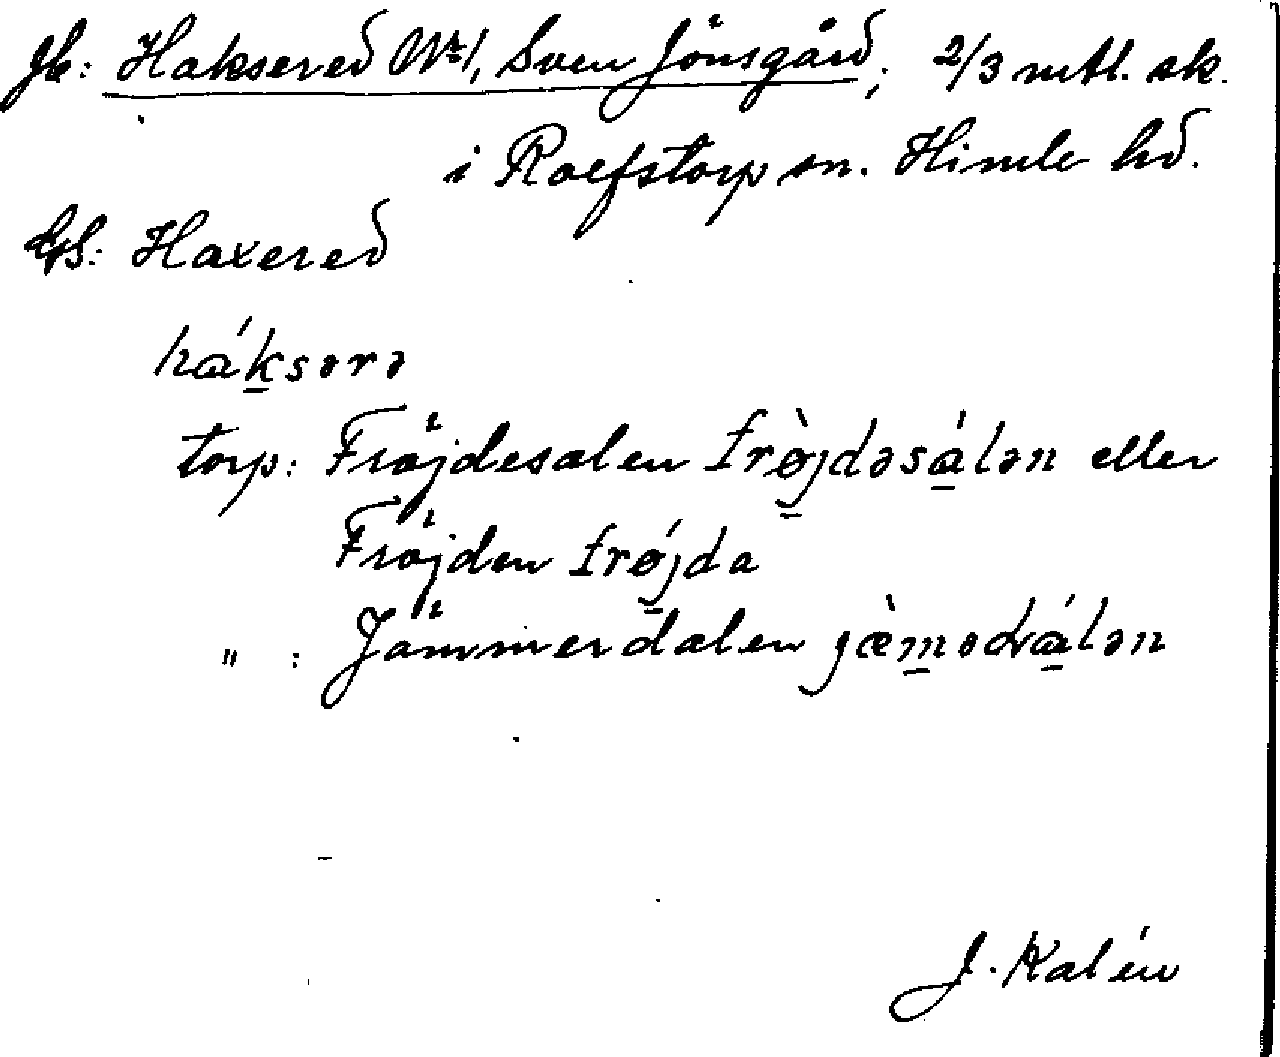 Jb: Haksered Nr 1, Sven Jönsgård; 2/3 mtl. sk.
i Rolfstorp sn. Himle hd.
GS: Haxered
háksərə
torp: Fröjdesalen frø̀jdəsálən eller
Fröjden frǿjda
" : Jämmerdalen jæ̀mədálən
J. Kalén